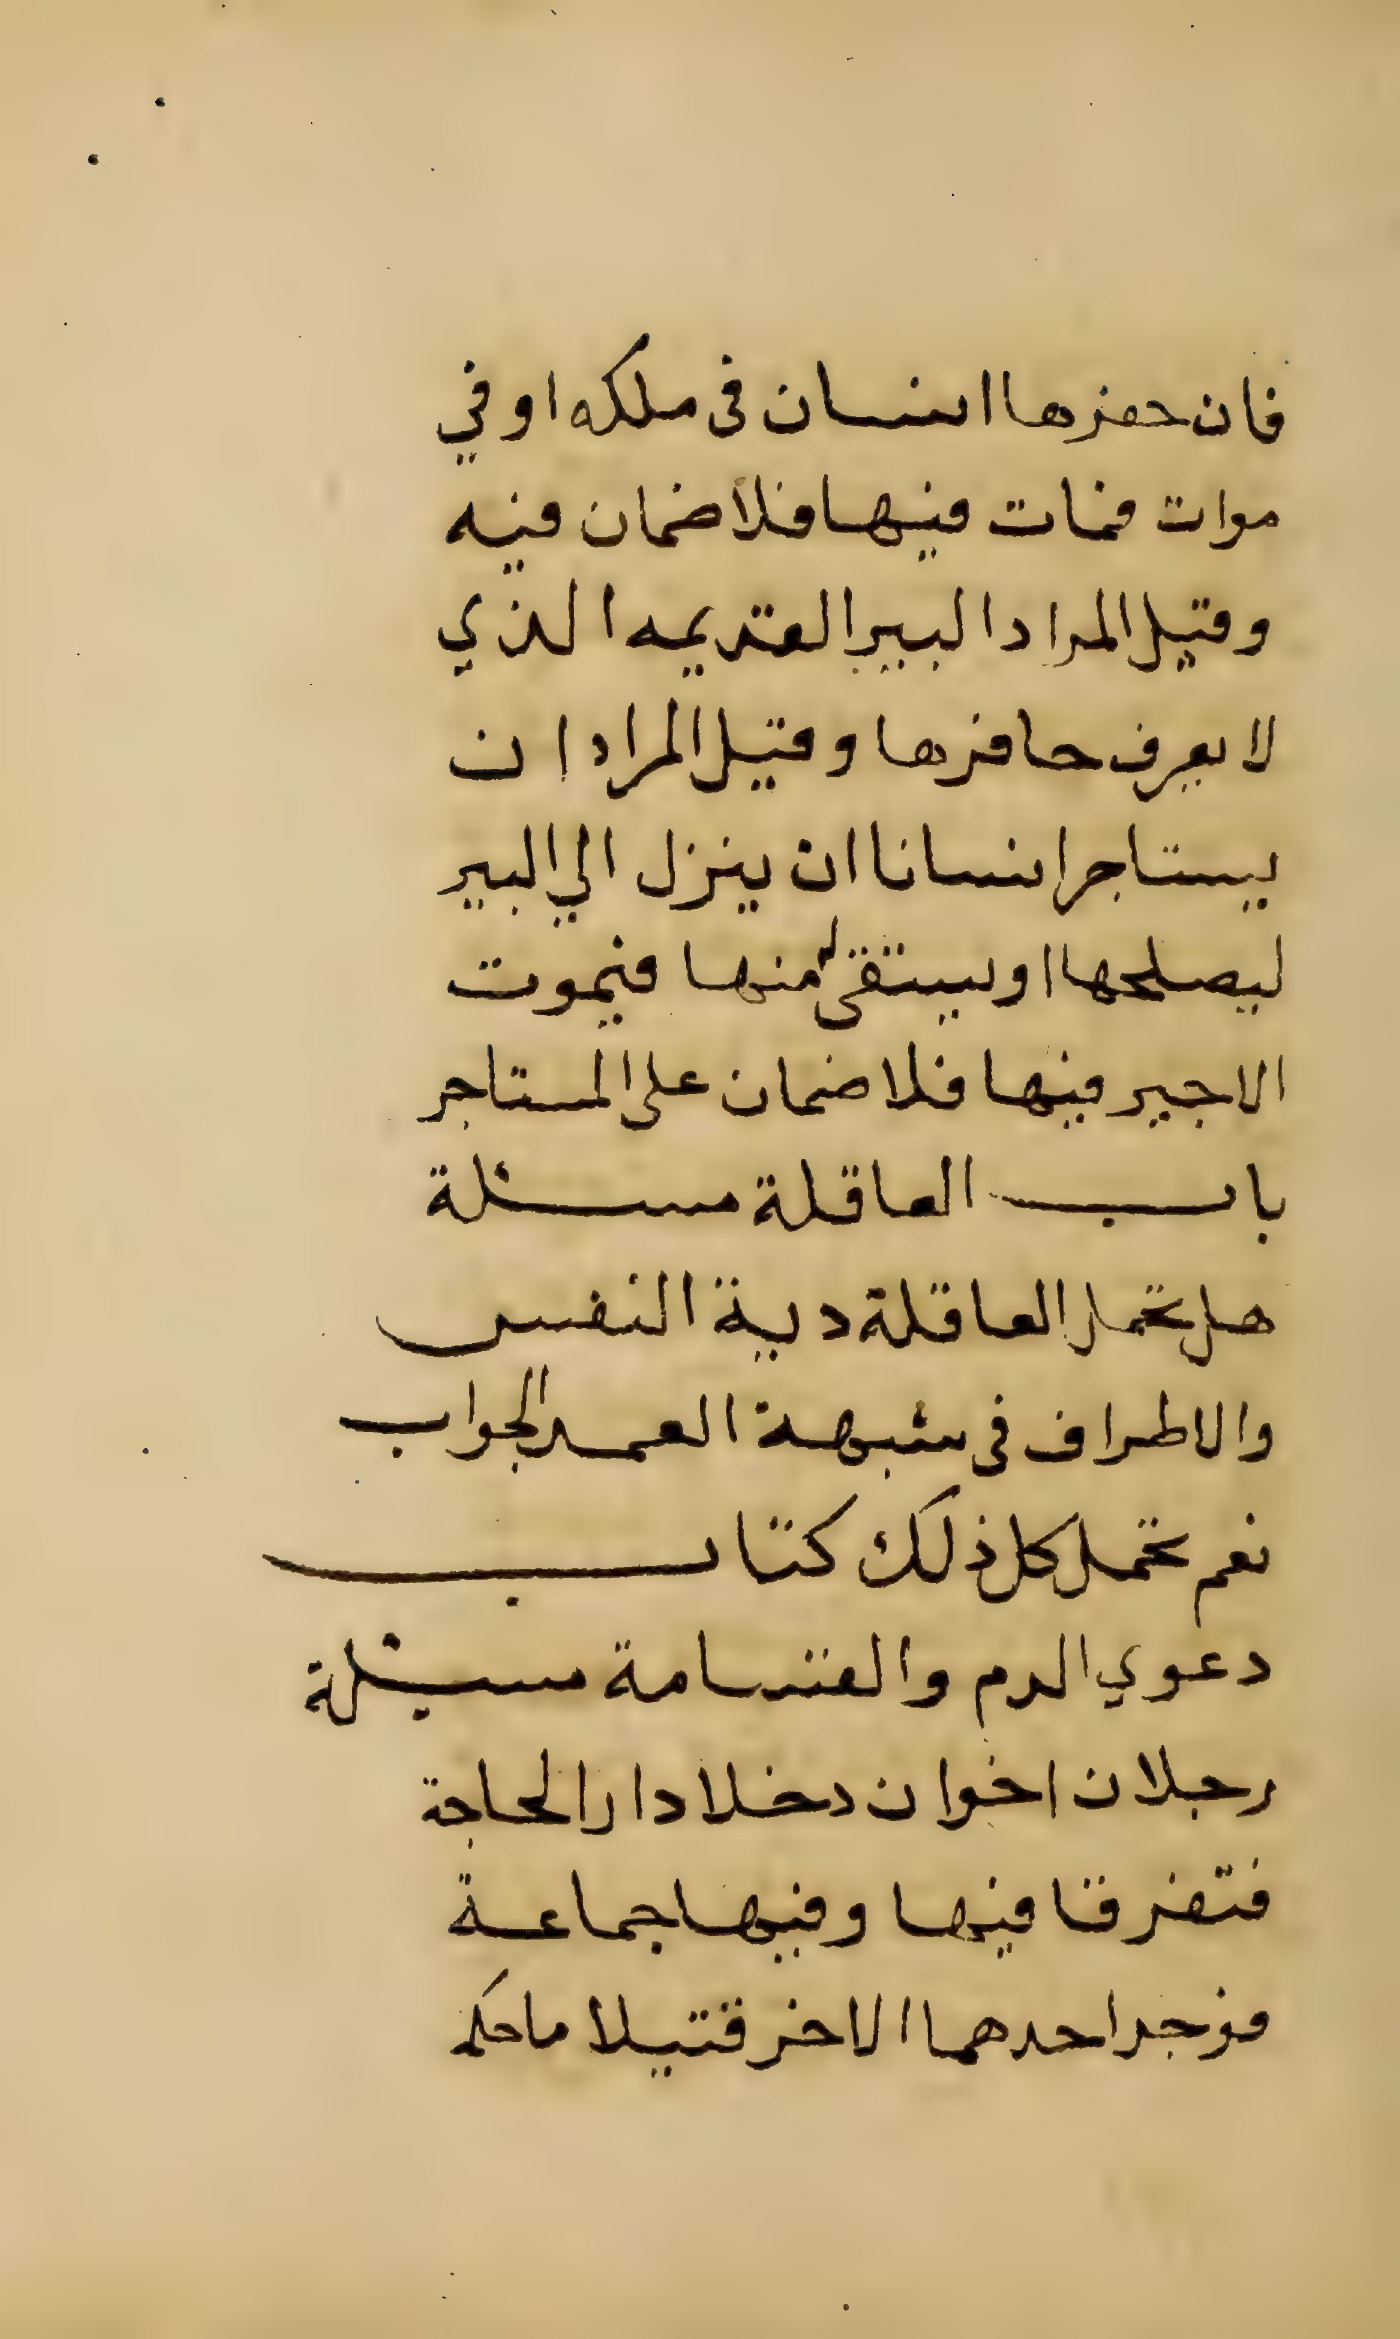 فان حفرها انسان فى ملكه او في
موات فمات فيها فلا ضمان فيه
وقيل المراد البير القديمه الذي
لا يعرف حافرها وقيل المراد ان
يستاجر انسانا ان ينزل الي البير
ليصلحها او ليستقى له منها فيموت
الاجير فيها فلا ضمان على المستاجر
باب العاقلة مسئلة
هل تحمل العاقلة دية النفس
والاطراف فى شبهة العمد الجواب
نعم تحمل كل ذلك كتاب
دعوي الدم والقسامة مسيئلة
رجلان اخوان دخلا دارا لحاجة
فتفرقا فيها وفيها جماعة
فوجد احدهما الاخر قتيلا ما حكم